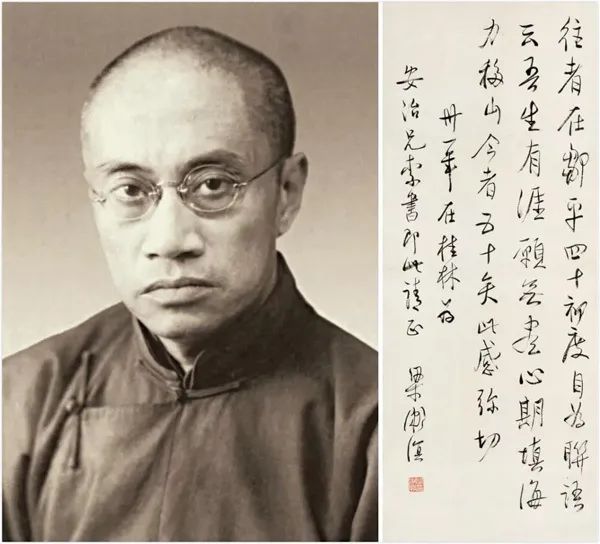 往者在鄒平四十初度自為聯語
云吾生有涯願无盡心期填海
力移山今者五十矣此感弥切
卅一年在桂林為
安治兄索書即此請正 梁漱溟